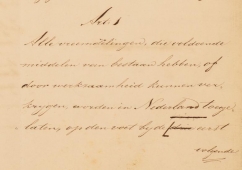 Art. 1
Alle vreemdelingen, die voldoende
middelen van bestaan hebben, of
door werkzaamheid kunnen ver-
krijgen, worden in Nederland toege-
laten, op den voet bij de eerst
volgende